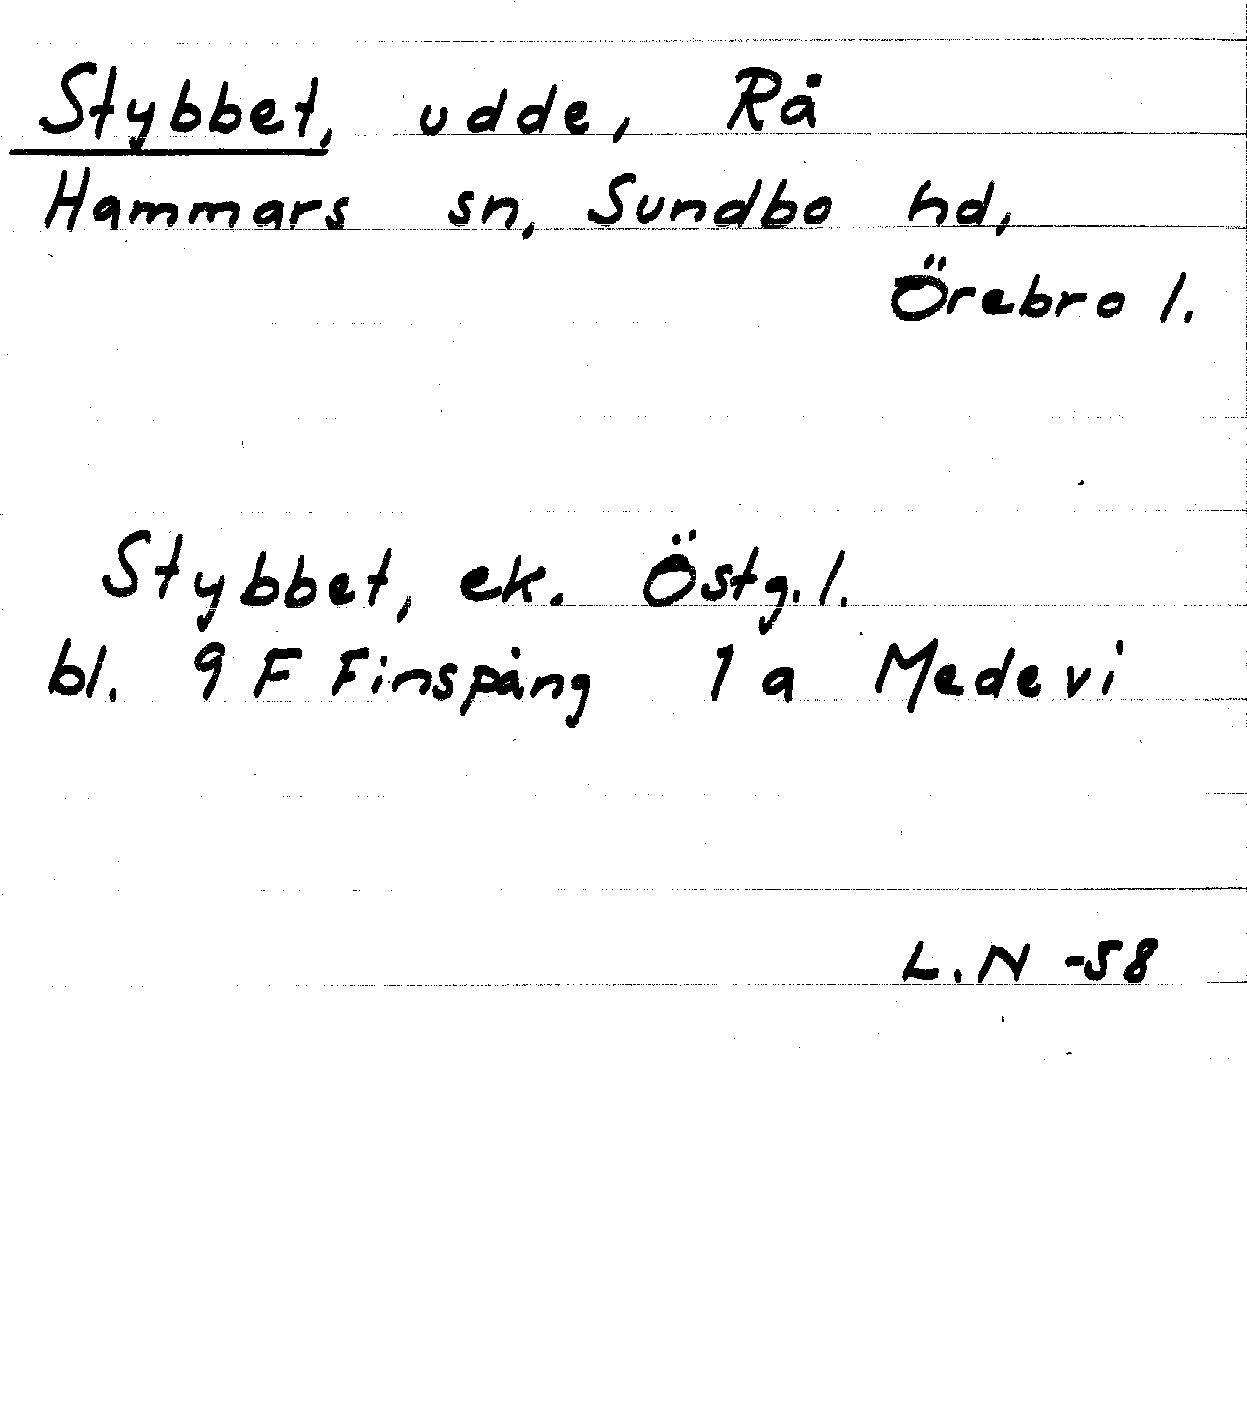 Stybbet, udde, Rå
Hammars sn, Sundbo hd,
Örebro l.
Stybbet, ek. Östg. l.
bl. 9 F Finspång 1 a Medevi
L.N -58